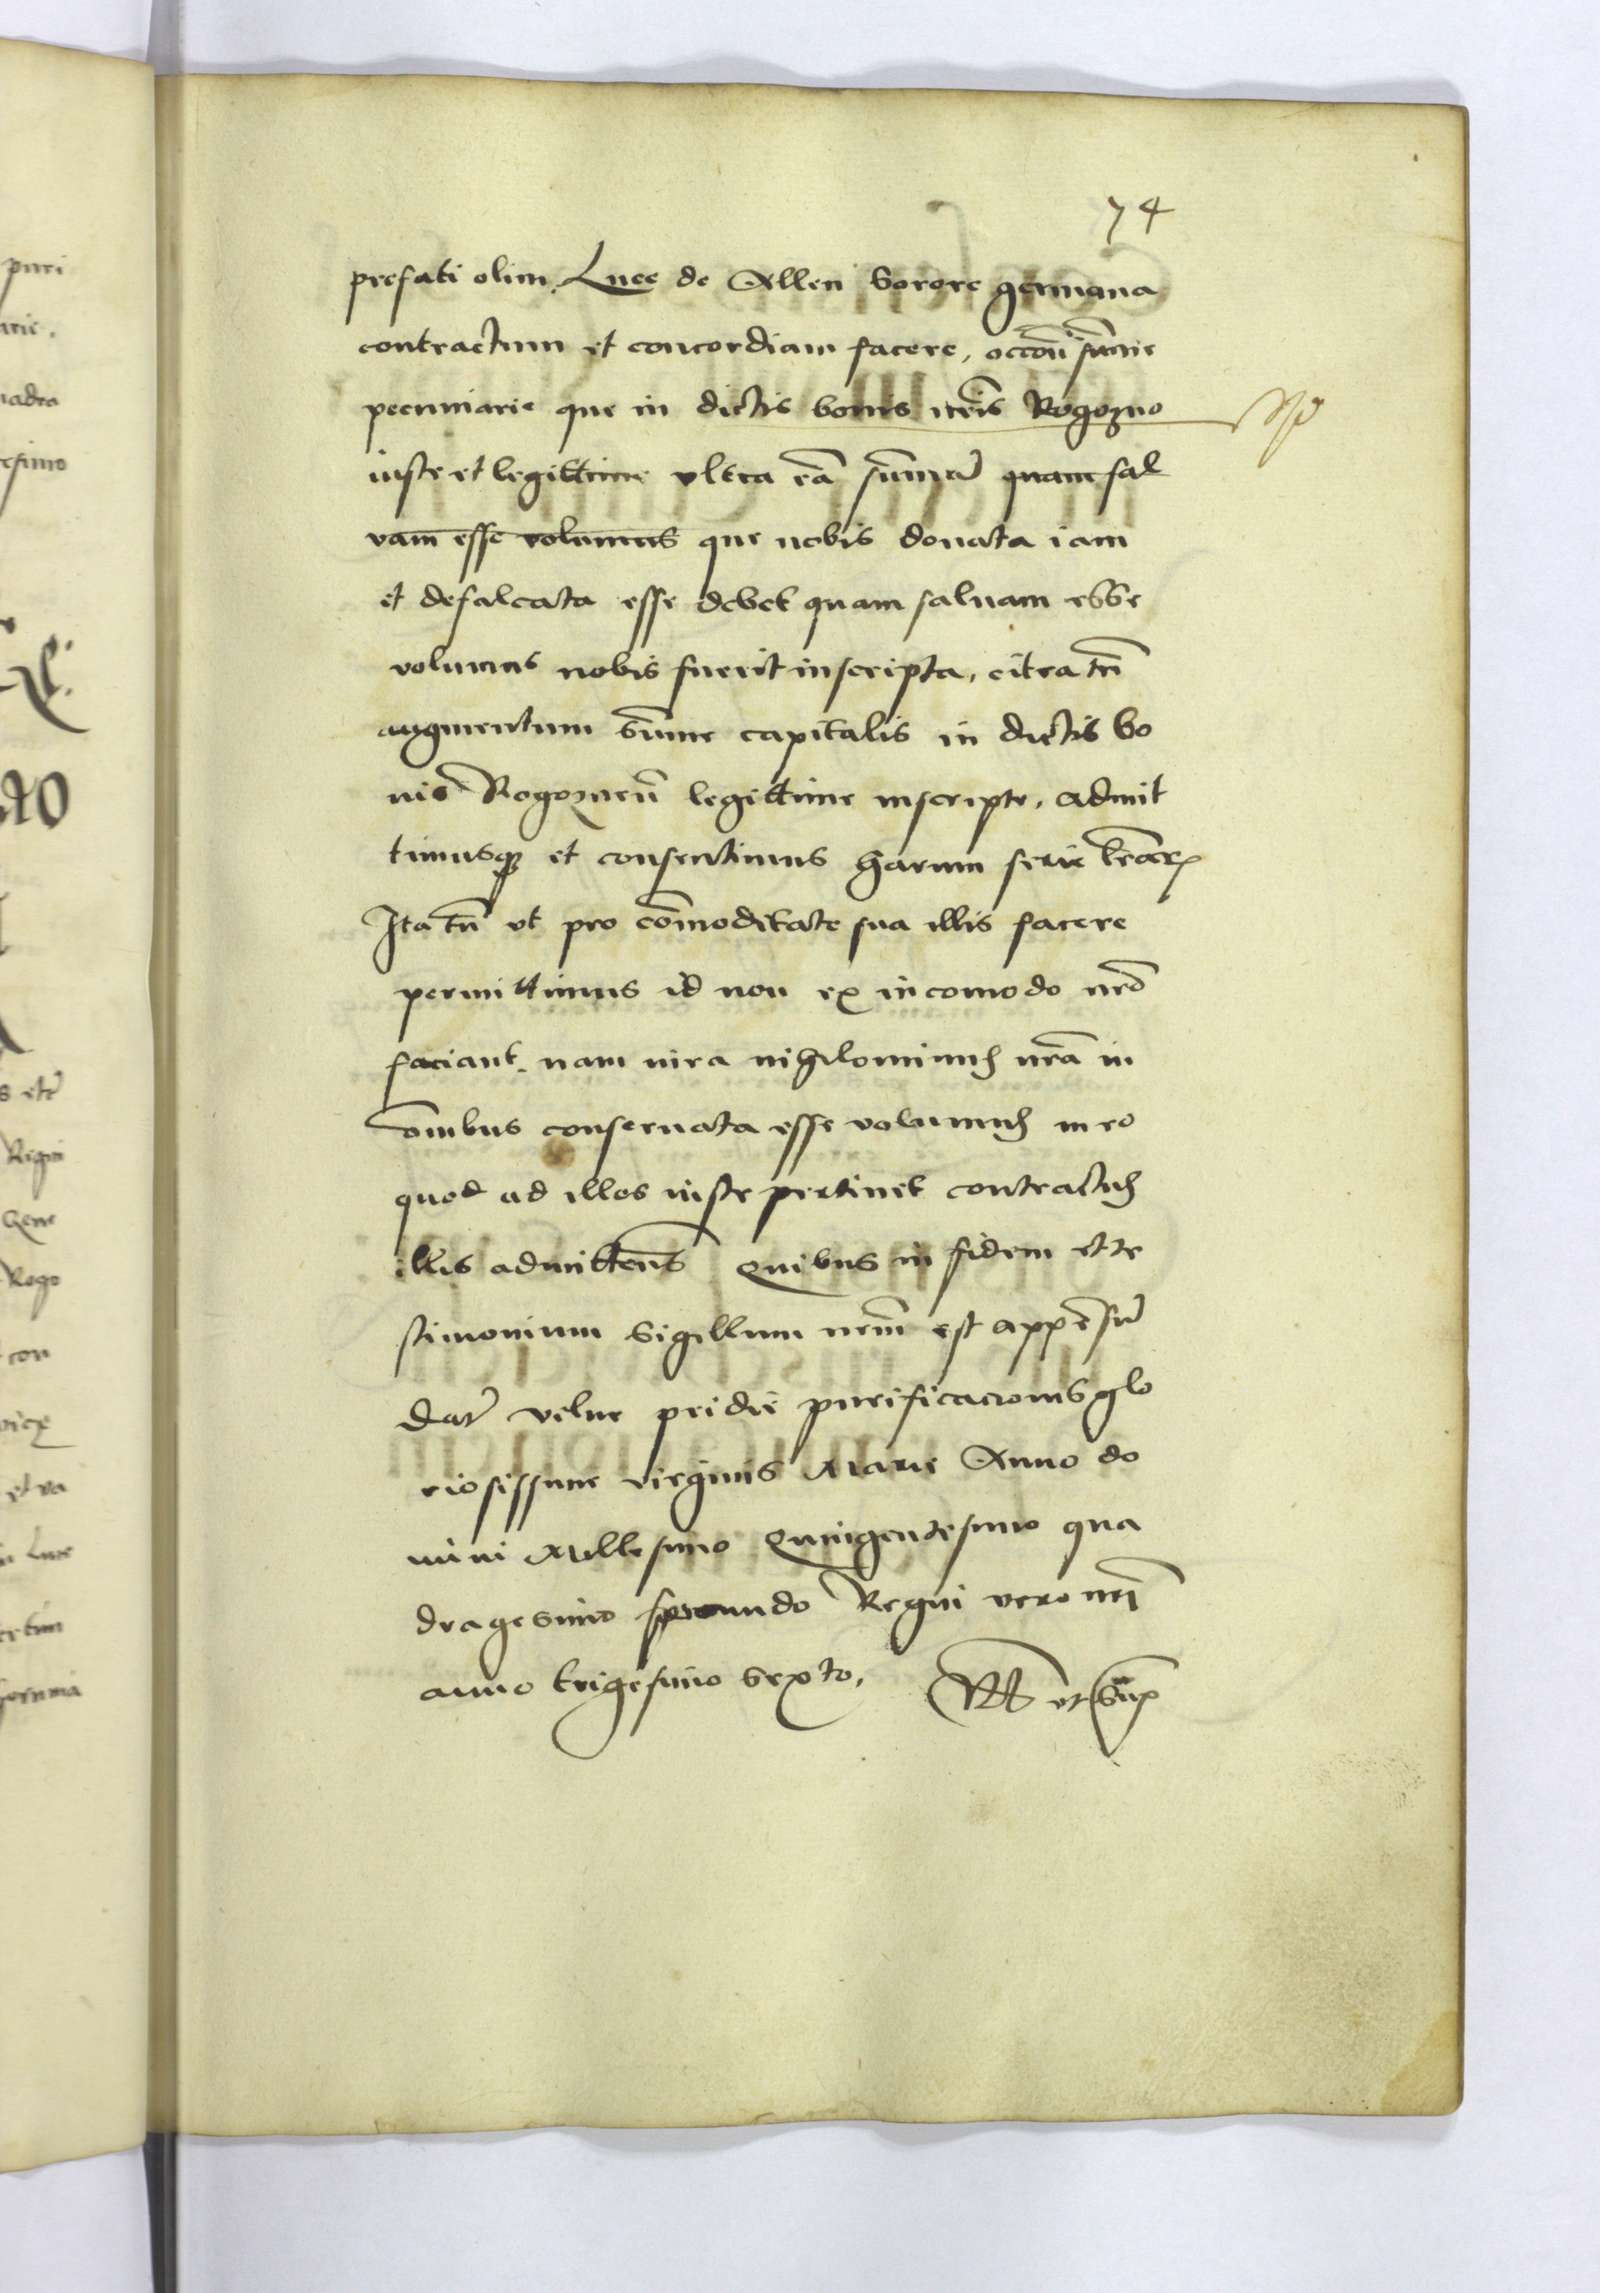 74
prefati olim Luce de Allen sorore germana
contractum et concordiam facere, occõni sum̃e
pecuniarie que in dictis bonis nr̃is Rogozno
iuste et legittime vltra eã sum̃ar̃ quam sal
vam esse volumus que nobis donata iam
et defalcata esse debet quam saluam esse
volumus nobis fuerit inscripta, citra tñ
augmentum sum̃e capitalis in dictis bo
nis Rogozneñ legittime inscripte, admit
timusqȝ et consentimus harum serie l̃rarꝝ
Ita tñ vt pro com̃oditate sua illis facere
permittimus id non ex incomodo nr̃o
faciant. nam iura nihilominus nr̃a in
om̃ibus conseruata esse volumus in eo
quod ad illos iuste pertinet contractus
illis admitteñs Quibus in fidem et te
stimonium Sigillum nr̃m est appẽsũ
Dat̃ Vilne pridie purificacionis glo
riosissime virginis Marie Anno do
mini Millesimo Quingentesimo qua
dragesimo secundo Regni vero nr̃i
anno trigesimo sexto,
ut sup̃
puri
Rigni
Rogo
con
et va
Luce